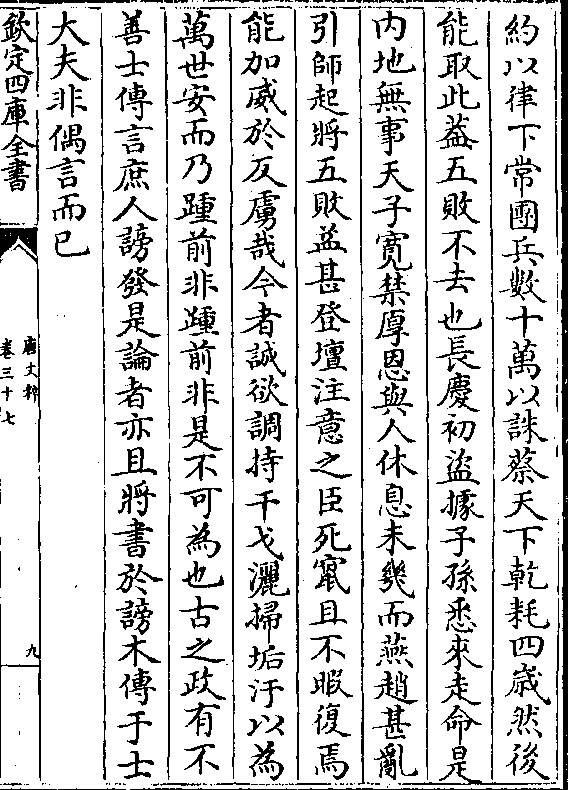 約以律下常團兵數十萬以誅蔡天下乾耗四歲然後
能取此葢五敗不去也長慶初盜據子孫悉來走命是
内地無事天子寛禁厚恩與人休息未幾而燕趙甚亂
引師起將五敗益甚登壇注意之臣死竄且不暇復焉
能加威於反虜哉今者誠欲調持干戈灑掃垢汙以為
萬世安而乃踵前非踵前非是不可為也古之政有不
善士傳言庶人謗發是論者亦且將書於謗木傳于士
大夫非偶言而已
欽定四庫全書
唐文粹
卷三十七
九